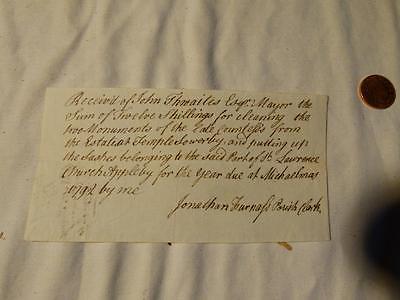 Receiv'd of John Thwaites Esqr. Mayor the
Sum of Twelve Shillings for cleaning the
two Monuments of the Late Countess from
the Estate at Temple Sowerby, and putting up
the Sashes belonging to the Said Part of St. Lawrence
Church Appleby for the Year due at Michaelmas
1792 by me
Jonathan Furnass Parish Clerk.